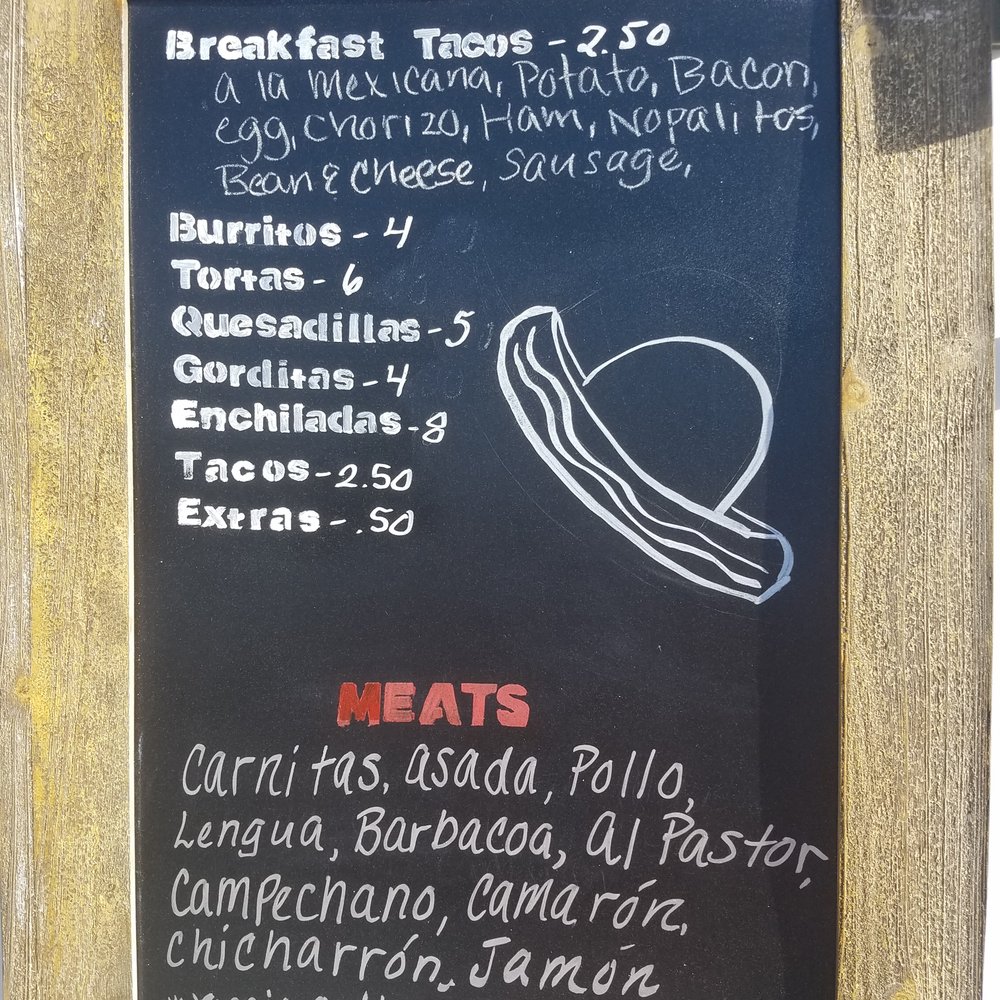 Breakfast Tacos - 2.50
a la Mexicana, Potato, Bacon,
egg, chorizo, Ham, Nopalitos,
Bean & Cheese, Sausage,
Burritos - 4
Tortas - 6
Quesadillas - 5
Gorditas - 4
Enchiladas - 8
Tacos - 2.50
Extras - .50
MEATS
Carnitas, asada, Pollo,
Lengua, Barbacoa, al Pastor,
Campechano, Camarón,
Chicharrón, Jamón